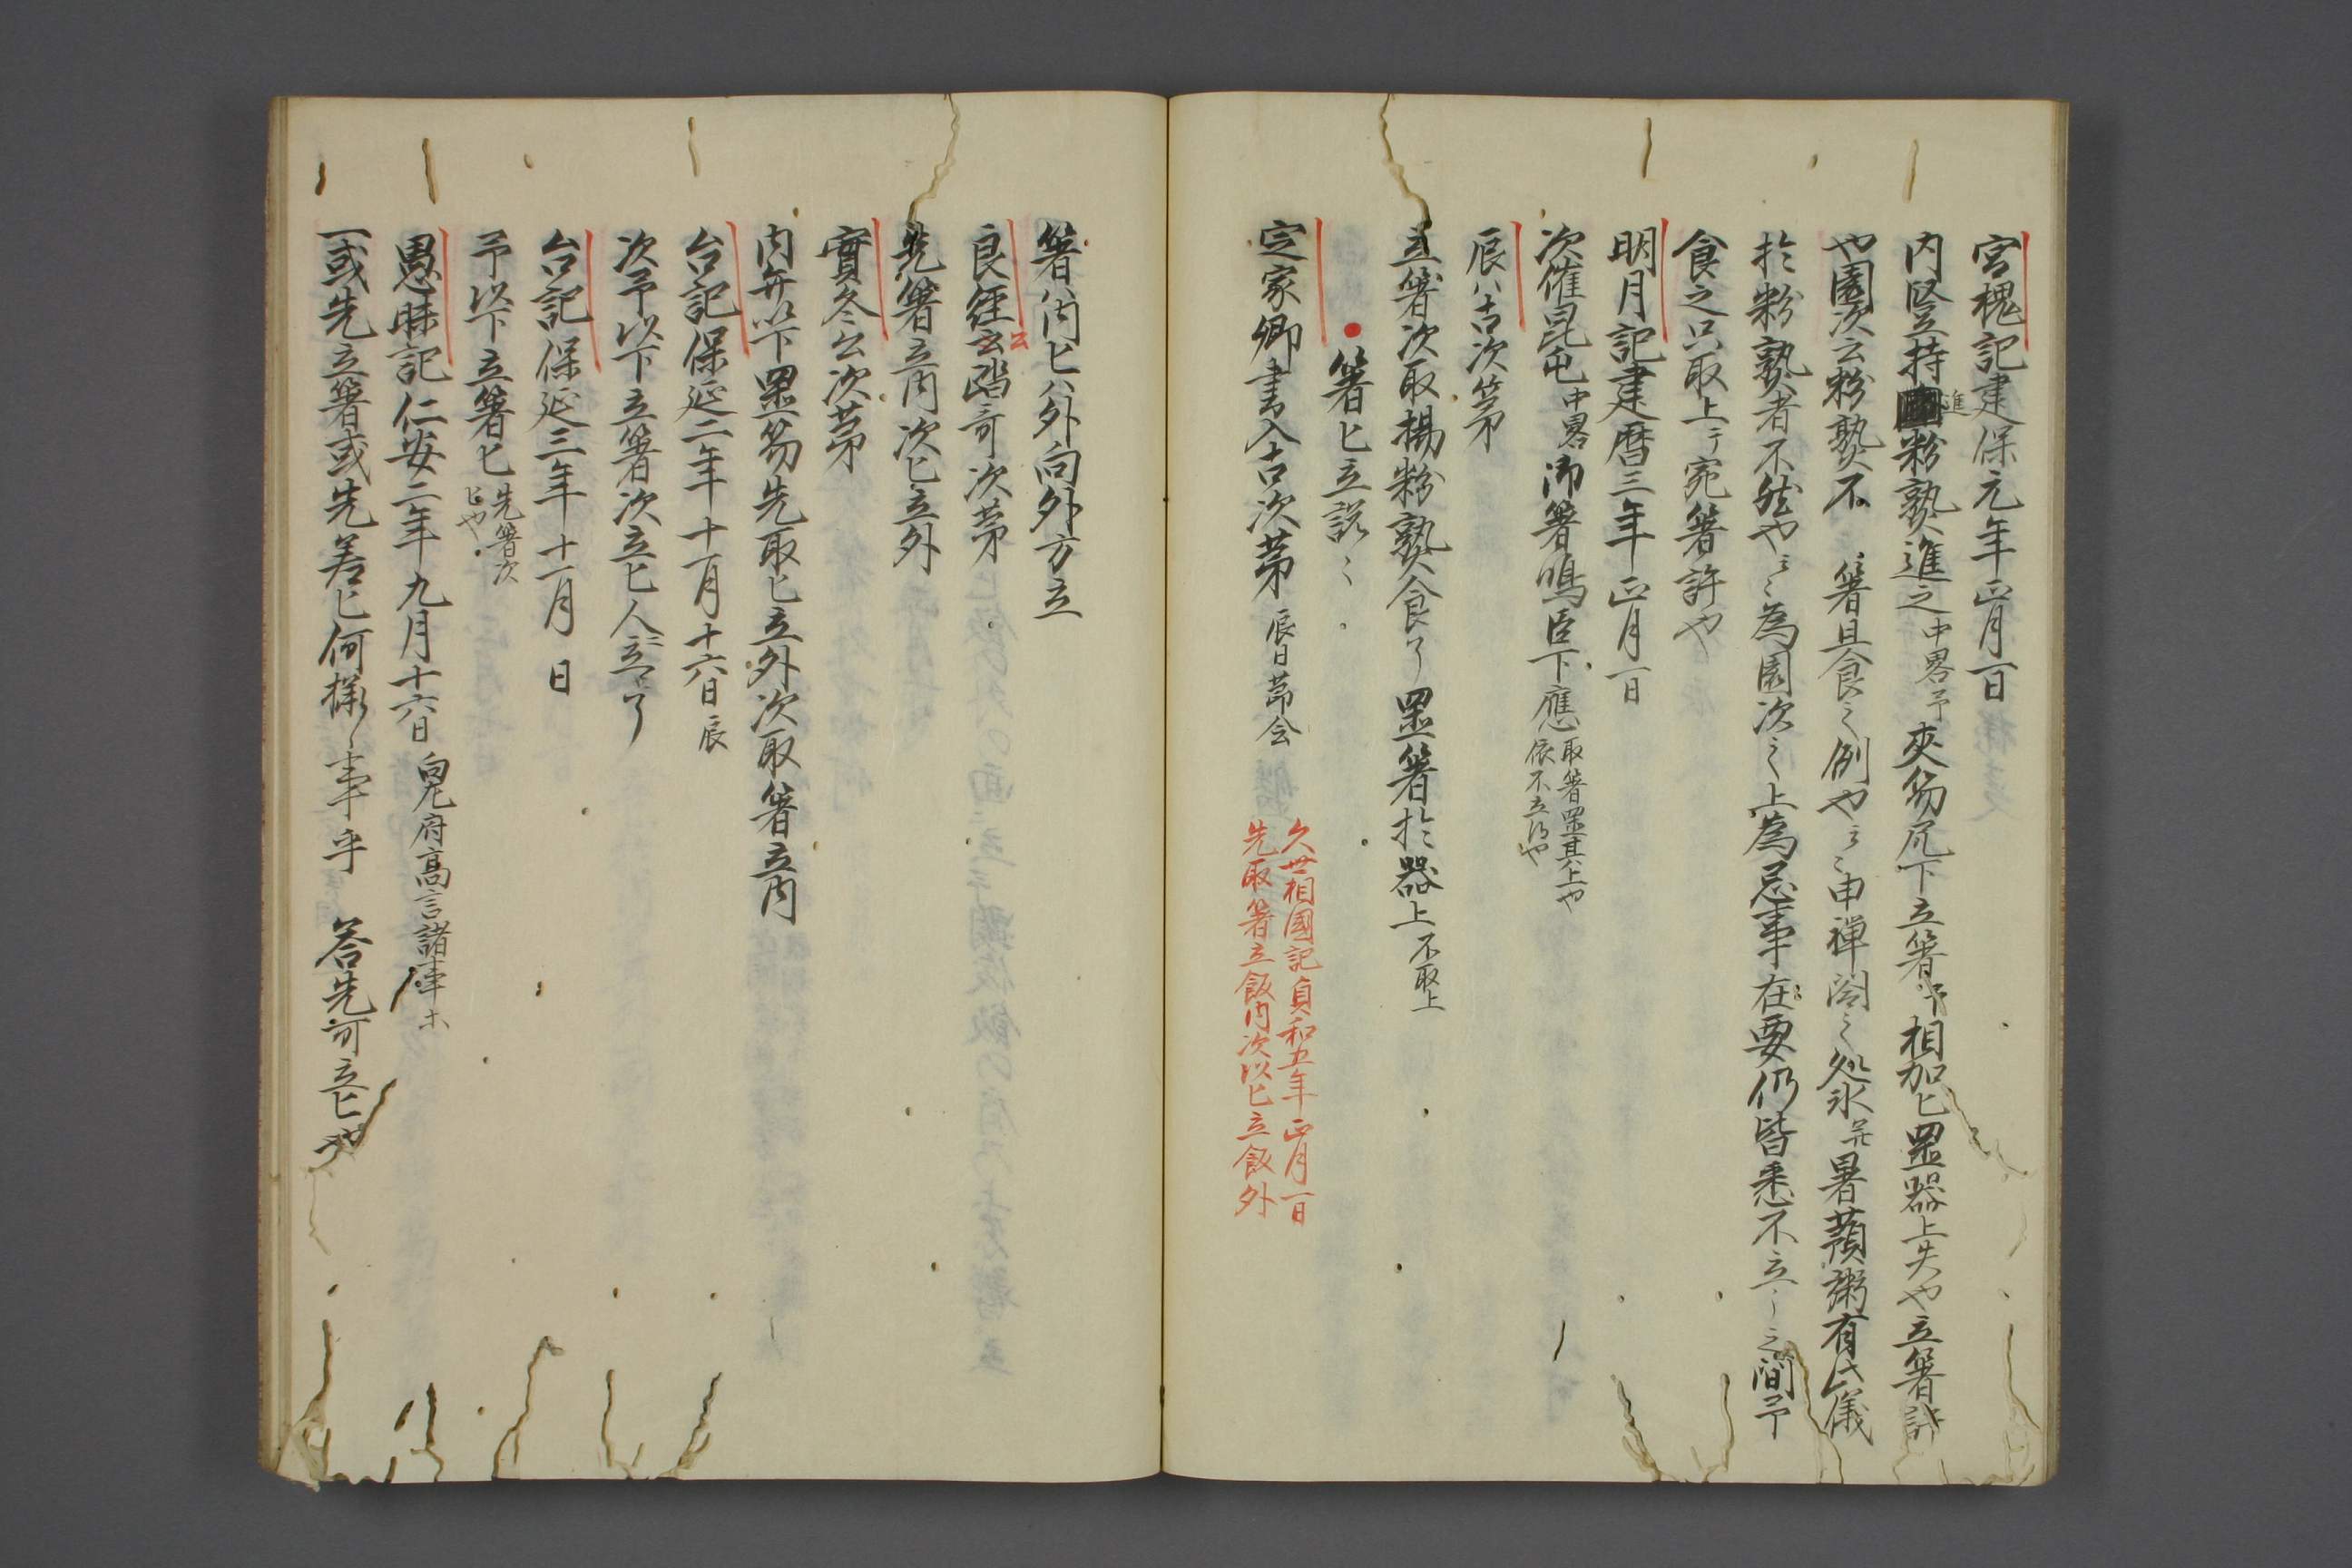 宮槐記建保元年正月一日
内竪持進粉熟進之中畧予夾笏尻下立箸予相加匕置器上失也立箸許
也園次云粉熟不箸且食之例也云々申禅閤之処氷并暑蕷粥有此儀
於粉熟者不然也云々為園次之上為忌事在要仍皆悉不立之間予
食之只取上テ宛箸許也
明月記建暦三年正月一日
次催昆屯中畧御箸鳴臣下應取箸置其上也
依不立得也
辰ハ古次第
立箸次取揚粉熟食了置箸於器上不取上
箸匕立説々
定家卿書入古次第 辰日節会
久世相國記貞和五年正月一日
先取箸立飯内次以匕立飯外
箸内匕ハ外向外方立
良経公踏哥次第
先箸立内次匕立外
實冬公次第
内弁以下置笏先取匕立外次取箸立内
台記保延二年十一月十六日辰
次予以下立箸次立匕人立了
台記保延三年十一月 日
予以下立箸匕先箸次
匕也
愚昧記仁安二年九月十六日向左府高言諸事
一或先立箸或先差匕何様事乎 答先可立匕也